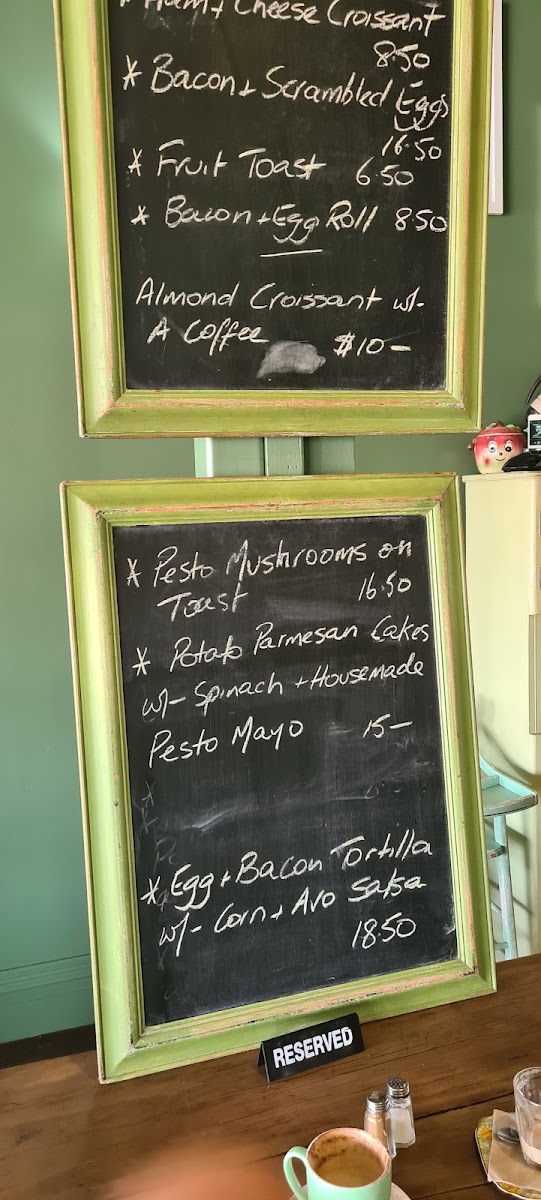 * Ham + Cheese Croissant
8.50
* Bacon + Scrambled Eggs
16.50
* Fruit Toast 6.50
* Bacon + Egg Roll 8.50
Almond Croissant w/-
A Coffee $10-
* Pesto Mushrooms on
Toast 16.50
* Potato Parmesan Cakes
w/- Spinach + Housemade
Pesto Mayo 15-
* Egg + Bacon Tortilla
w/- Corn + Avo Salsa
18.50
RESERVED